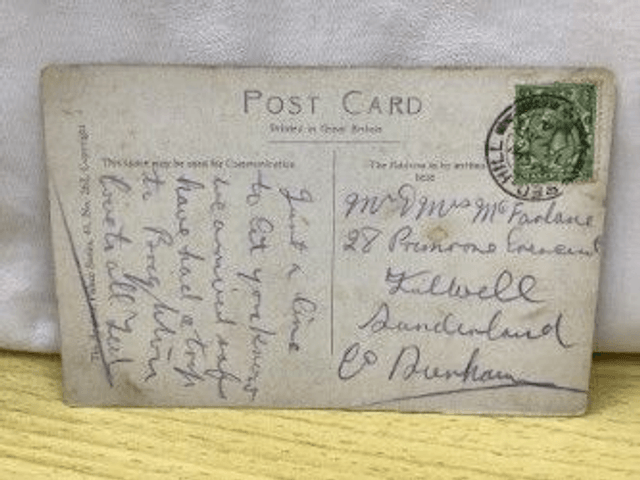 POST CARD
Printed in Great Britain
This space may be used for Communication
The Address to be written here
HILL
RED
Just a line
to let you know
we arrived safe
have had a trip
to Brighton
love to all Fred
Mr & Mrs McFarlane
28 Primrose Crescent
Fulwell
Sunderland
Co Durham